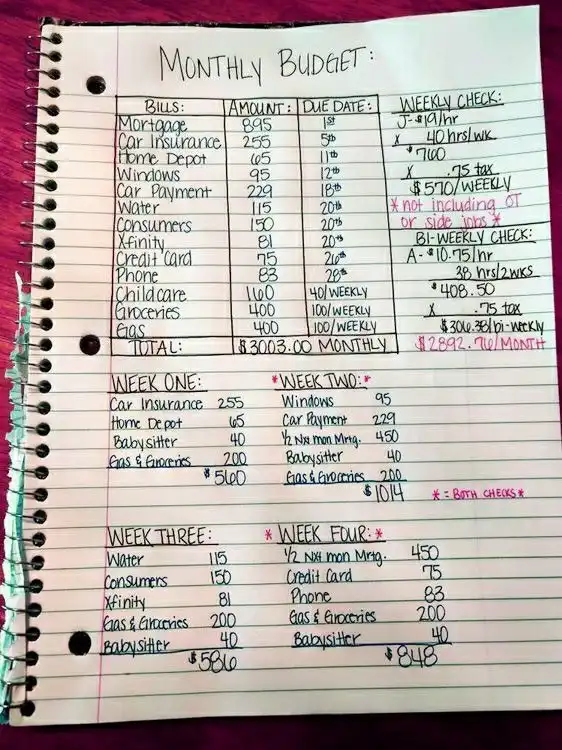 MONTHLY BUDGET:
BILLS: AMOUNT: DUE DATE:
Mortgage 895 1st
Car Insurance 255 5th
Home Depot 65 11th
Windows 95 12th
Car Payment 229 18th
Water 115 20th
Consumers 150 20th
Xfinity 81 20th
Credit Card 75 26th
Phone 83 28th
Childcare 160 40/WEEKLY
Groceries 400 100/WEEKLY
Gas 400 100/WEEKLY
TOTAL: $3003.00 MONTHLY
WEEKLY CHECK:
J- $19/hr
x 40 hrs/wk.
$760
x .75 tax
$570/WEEKLY
*not including OT
or side jobs*
BI-WEEKLY CHECK:
A- $10.75/hr
38 hrs/2wks
$408.50
x .75 tax
$306.38/bi-weekly
$2892.76/MONTH
WEEK ONE:
Car Insurance 255
Home Depot 65
Babysitter 40
Gas & Groceries 200
$560
*WEEK TWO:*
Windows 95
Car Payment 229
1/2 Nxt mon Mrtg. 450
Babysitter 40
Gas & Groceries 200
$1014
*=BOTH CHECKS*
WEEK THREE:
Water 115
Consumers 150
Xfinity 81
Gas & Groceries 200
Babysitter 40
$586
*WEEK FOUR:*
1/2 Nxt mon Mrtg. 450
Credit Card 75
Phone 83
Gas & Groceries 200
Babysitter 40
$848